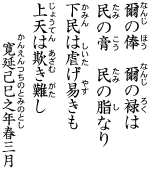 なんじ ほう なんじ ろく
爾の俸 爾の禄は
たみ こう たみ し
民の膏 民の脂なり
かみん しいた やす
下民は虐げ易きも
じょうてん あざむ がた
上天は欺き難し
かんえんつちのとみのとし
寛延己巳之年春三月